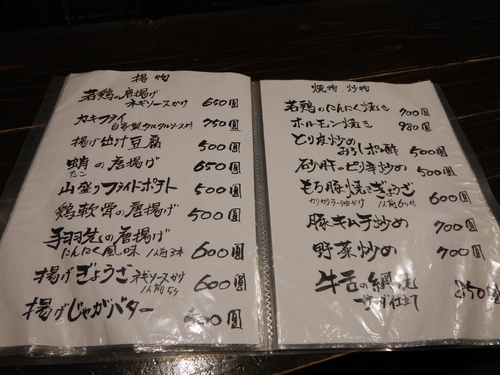 揚物
若鶏の唐揚げ
ネギソースかけ 650圓
カキフライ
自家製タルタルソース付 750圓
揚げ出汁豆腐 500圓
蛸の唐揚げ 650圓
たこ
山盛りフライドポテト 500圓
鶏軟骨の唐揚げ 500圓
手羽先の唐揚げ
にんにく風味 1人前3本 600圓
揚げぎょうざ ネギソースかけ
1人前5ヶ 600圓
揚げじゃがバター 400圓
焼物 炒物
若鶏のにんにく焼き 700圓
ホルモン焼き 980圓
とり皮炒め
おろしポン酢 500圓
砂肝のピリ辛炒め 500圓
もち豚焼きぎょうざ
カリカリラー油かけ 1人前6ヶ付 600圓
豚キムチ炒め 700圓
野菜炒め 700圓
牛舌の網焼
サラダ仕立て 850圓